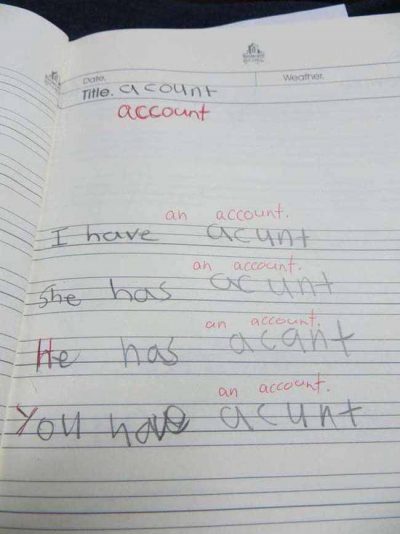 Date.
Weather.
Title. acount
account
an account.
I have acunt
an account.
She has acunt
an account.
He has acant
an account.
You have acunt